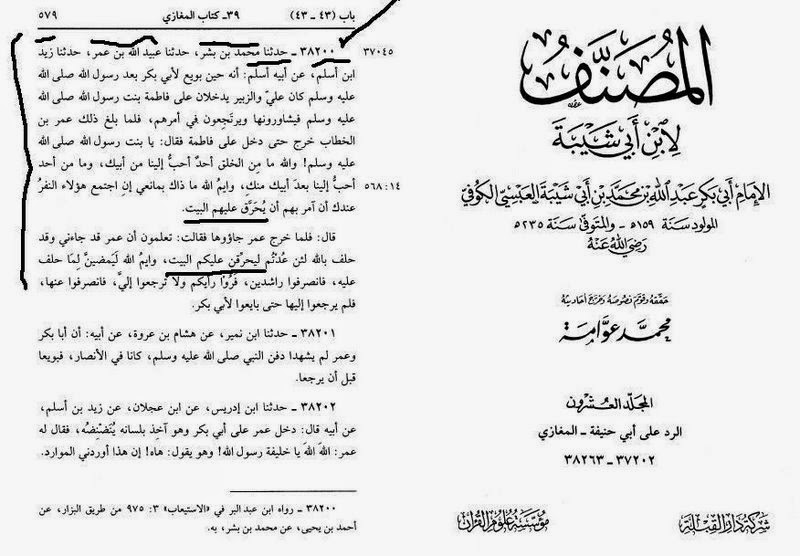 باب (٤٣ - ٤٣)
٣٩- كتاب المغازي
٥٧٩
٣٧٠٤٥
٣٨٢٠٠ - حدثنا محمد بن بشر، حدثنا عبيد الله بن عمر، حدثنا زيد
ابن أسلم، عن أبيه أسلم: أنه حين بويع لأبي بكر بعد رسول الله صلى الله
عليه وسلم كان عليّ والزبير يدخلان على فاطمة بنت رسول الله صلى الله
عليه وسلم فيشاورونها ويرتجعون في أمرهم، فلما بلغ ذلك عمر بن
الخطاب خرج حتى دخل على فاطمة فقال: يا بنت رسول الله صلى الله
عليه وسلم! والله ما مِن الخلق أحدٌ أحبُّ إلينا من أبيك، وما من أحد
٥٦٨:١٤
أحبُّ إلينا بعدَ أبيك منكِ، وايمُ الله ما ذاك بمانعي إن اجتمع هؤلاء النفرُ
عندك أن آمر بهم أن يُحَرَّق عليهم البيت.
قال: فلما خرج عمر جاؤوها فقالت: تعلمون أن عمر قد جاءني وقد
حلف بالله لئن عُدْتُم ليحرّقن عليكم البيت، وايم الله لَيَمضينَّ لِمَا حلف
عليه، فانصرفوا راشدين، فَرُوْا رأيكم ولا ترجعوا إليَّ، فانصرفوا عنها،
فلم يرجعوا إليها حتى بايعوا لأبي بكر.
٣٨٢٠١ - حدثنا ابن نمير، عن هشام بن عروة، عن أبيه: أن أبا بكر
وعمر لم يشهدا دفن النبي صلى الله عليه وسلم، كانا في الأنصار، فبويعا
قبل أن يرجعا.
٣٨٢٠٢ - حدثنا ابن إدريس، عن ابن عجلان، عن زيد بن أسلم،
عن أبيه قال: دخل عمر على أبي بكر وهو آخِذ بلسانه يُنَضْنِضُه، فقال له
عمر: اللهَ اللهَ يا خليفة رسول الله! وهو يقول: هاه! إن هذا أوردني الموارد.
٣٨٢٠٠ - رواه ابن عبد البر في «الاستيعاب» ٣: ٩٧٥ من طريق البزار، عن
أحمد بن يحيى، عن محمد بن بشر، به.
المُصَنَّف
لِابْنِ أَبِي شَيْبَة
الإمام أبي بكر عبد الله بن محمد بن أبي شيبة العبسي الكوفي
المولود سنة ١٥٩ه - والمتوفى سنة ٢٣٥ه
رضي الله عنه
حققه وقوّم نصوصه وخرّج أحاديثه
محمد عوامة
المجلد العشرون
الرد على أبي حنيفة - المغازي
٣٧٢٠٢ - ٣٨٢٦٣
شركة دار القبلة
مؤسسة علوم القرآن